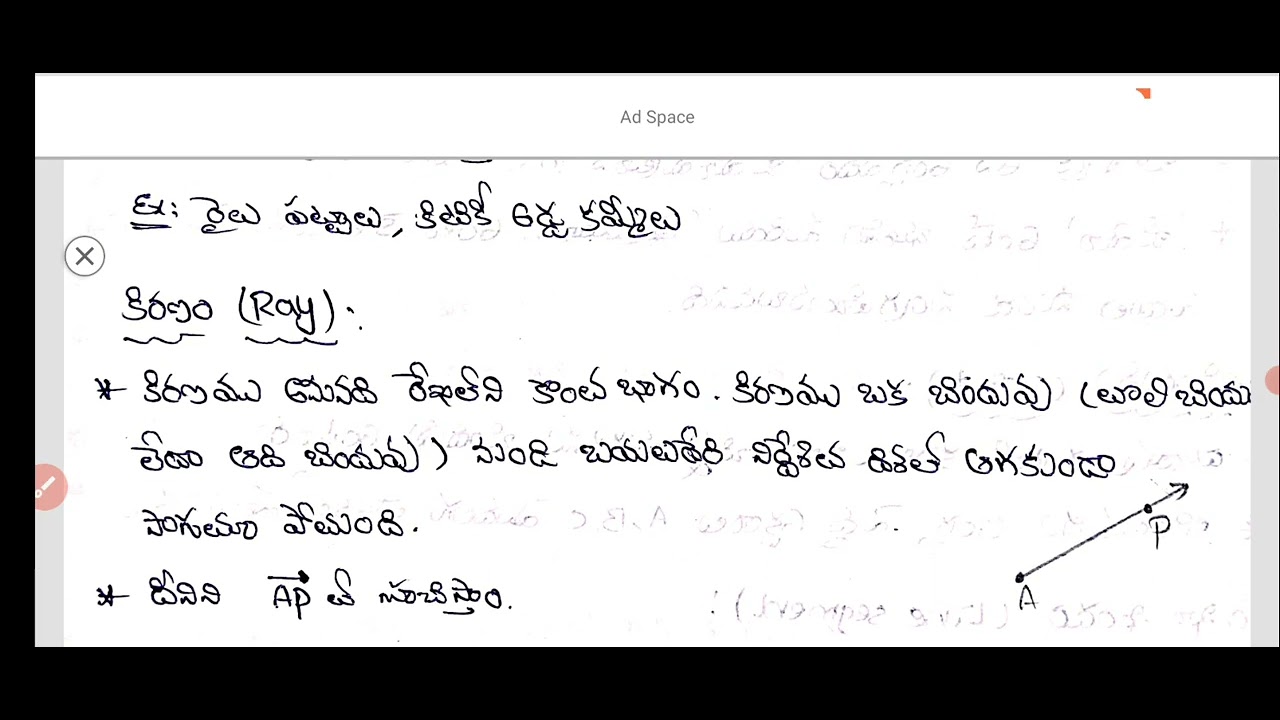 Ad Space
Ex: రైలు పట్టాలు, కిటికీ అడ్డ కమ్మీలు
కిరణం (Ray):
* కిరణము అనునది రేఖలోని కొంత భాగం. కిరణము ఒక బిందువు (తొలి బిందు
లేదా ఆది బిందువు) నుండి బయలుదేరి నిర్దేశిత దిశలో ఆగకుండా
సాగుతూ పోతుంది.
* దీనిని AP తో సూచిస్తాం.
P
A